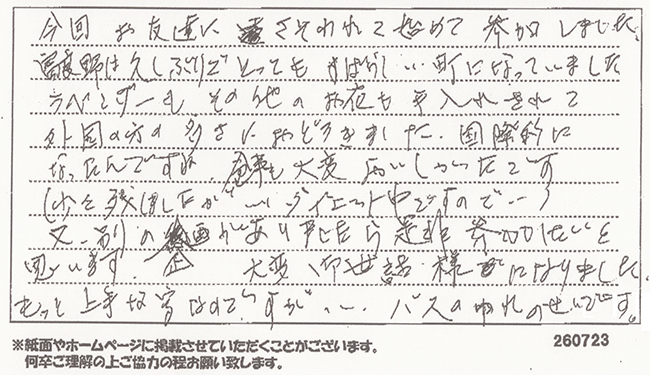 今回 お友達に さそわれて始めて 参加しました。
富良野は久しぶりで とっても すばらしい町になっていました
ラベンダーも その他の お花も 手入れされて
外国の方の多さに おどろきました。国際的に
なったんですね。食事も大変 美味しかったです
(少々残しましたが… ダイエット中ですので…)
又、別の企画がありましたら是非 参加したいと
思います。 大変 御世話様になりました。
もっと上手な字なのですが…。バスのゆれのせいです。
※紙面やホームページに掲載させていただくことがございます。
何卒ご理解の上ご協力の程お願い致します。
260723